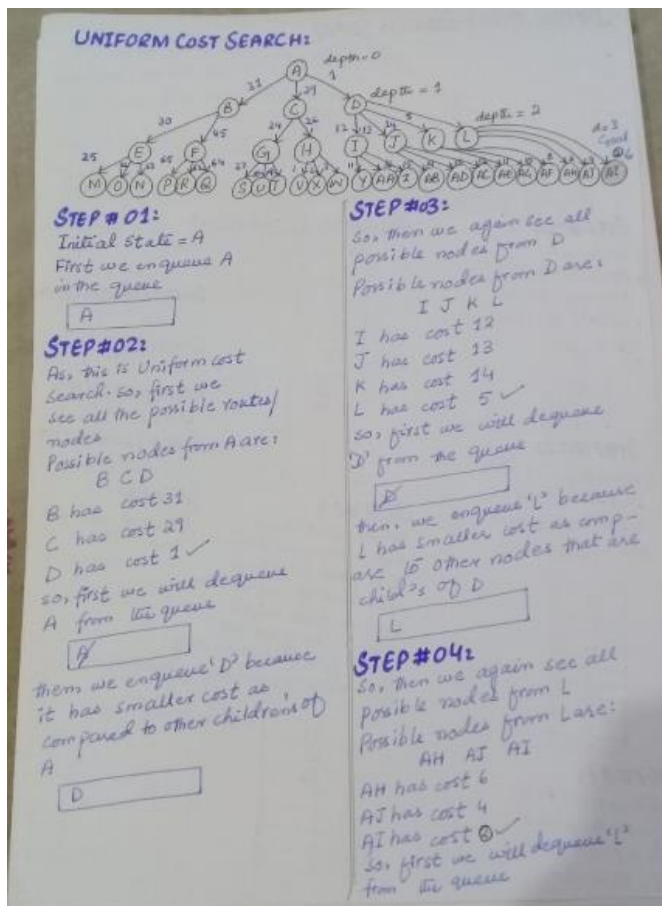 UNIFORM COST SEARCH:
depth=0
A
31
29
1
B
C
D
depth = 1
30
45
24
26
12
13
14
5
depth = 2
E
F
G
H
I
J
K
L
d=3
Goal
25
65
64
27
11
6
M O N P R Q S U T V X W Y AA Z AB AD AC AE AG AF AH AJ AI
STEP # 01:
Initial State = A
First we enqueue A
in the queue
A
STEP#02:
As, this is Uniform cost
Search. So, first we
see all the possible routes/
nodes
Possible nodes from A are:
B C D
B has cost 31
C has cost 29
D has cost 1 ✓
so, first we will dequeue
A from the queue
A
then we enqueue 'D' because
it has smaller cost as
compared to other children's of
A
D
STEP#03:
So, then we again see all
possible nodes from D
Possible nodes from D are:
I J K L
I has cost 12
J has cost 13
K has cost 14
L has cost 5 ✓
so, first we will dequeue
'D' from the queue
D
then, we enqueue 'L' because
L has smaller cost as comp-
are to other nodes that are
child's of D
L
STEP#04:
So, then we again see all
Possible nodes from L
Possible nodes from L are:
AH AJ AI
AH has cost 6
AJ has cost 4
AI has cost ✓
So, first we will dequeue 'L'
from the queue